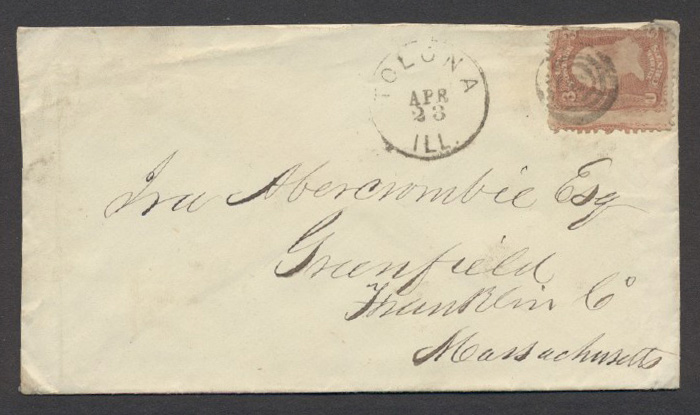 TOLONA
APR
23
ILL.
3
Ira Abercrombie Esq
Greenfield
Franklin Co
Massachusetts